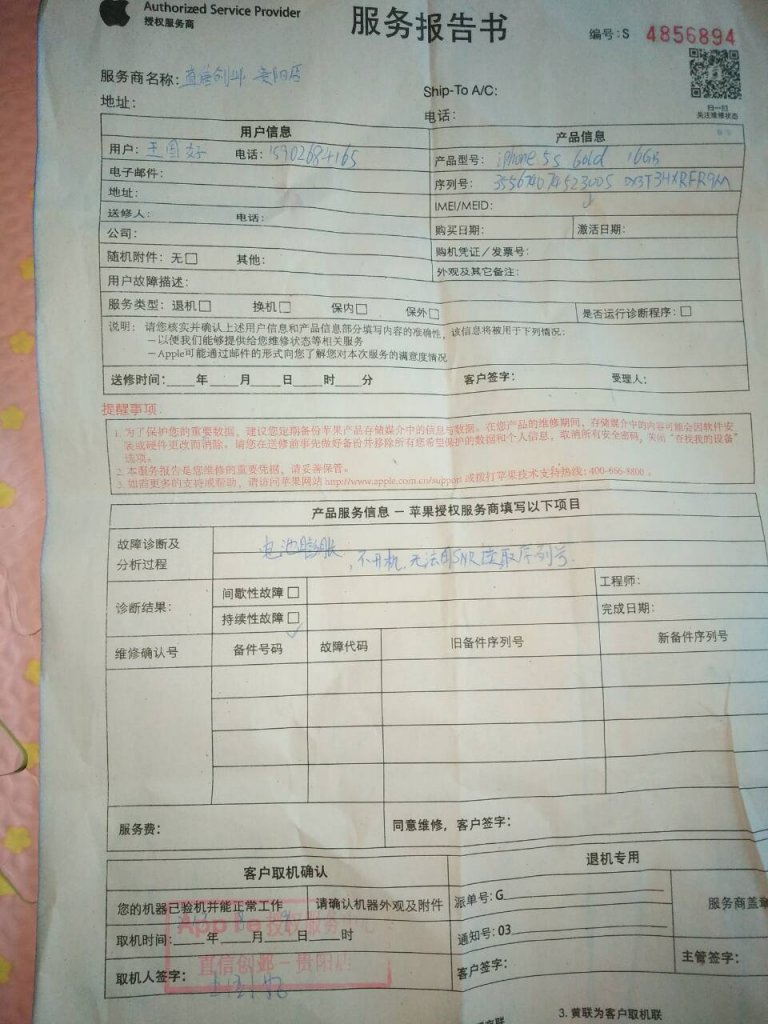 Authorized Service Provider
授权服务商
服务报告书
编号：S 4856894
扫一扫
关注维修状态
服务商名称：直信创邺 贵阳店
Ship-To A/C:
地址：
电话：
用户信息
产品信息
用户： 电话：15902684165
产品型号：iPhone 5s Gold 16GB
电子邮件：
序列号：
地址：
IMEI/MEID:
送修人： 电话：
购买日期： 激活日期：
公司：
购机凭证／发票号：
随机附件：无□ 其他：
外观及其它备注：
用户故障描述：
服务类型：退机□ 换机□ 保内□ 保外□
是否运行诊断程序：□
说明：请您核实并确认上述用户信息和产品信息部分填写内容的准确性，该信息将被用于下列情况：
－以便我们能够提供给您维修状态等相关服务
－Apple可能通过邮件的形式向您了解您对本次服务的满意度情况
送修时间：____年____月____日____时____分 客户签字： 受理人：
提醒事项：
1. 为了保护您的重要数据，建议您定期备份苹果产品存储媒介中的信息与数据。在您产品的维修期间，存储媒介中的内容可能会因软件安
装或硬件更改而消除。请您在送修前事先做好备份并移除所有您希望保护的数据和个人信息，取消所有安全密码，关闭“查找我的设备”
选项。
2. 本服务报告是您维修的重要凭据，请妥善保管。
3. 如需更多的支持或帮助，请访问苹果网站 http://www.apple.com.cn/support 或拨打苹果技术支持热线：400-666-8800 。
产品服务信息 － 苹果授权服务商填写以下项目
故障诊断及
分析过程
电池膨胀，不开机，无法用SNR读取序列号.
诊断结果：
间歇性故障□
工程师：
持续性故障□
完成日期：
维修确认号 备件号码 故障代码 旧备件序列号 新备件序列号
服务费：
同意维修，客户签字：
客户取机确认
退机专用
您的机器已验机并能正常工作 请确认机器外观及附件
派单号：G
服务商盖章
取机时间：____年____月____日____时
通知号：03
取机人签字：
客户签字：
主管签字：
Apple授权服务中心
直信创邺－贵阳店
3. 黄联为客户取机联